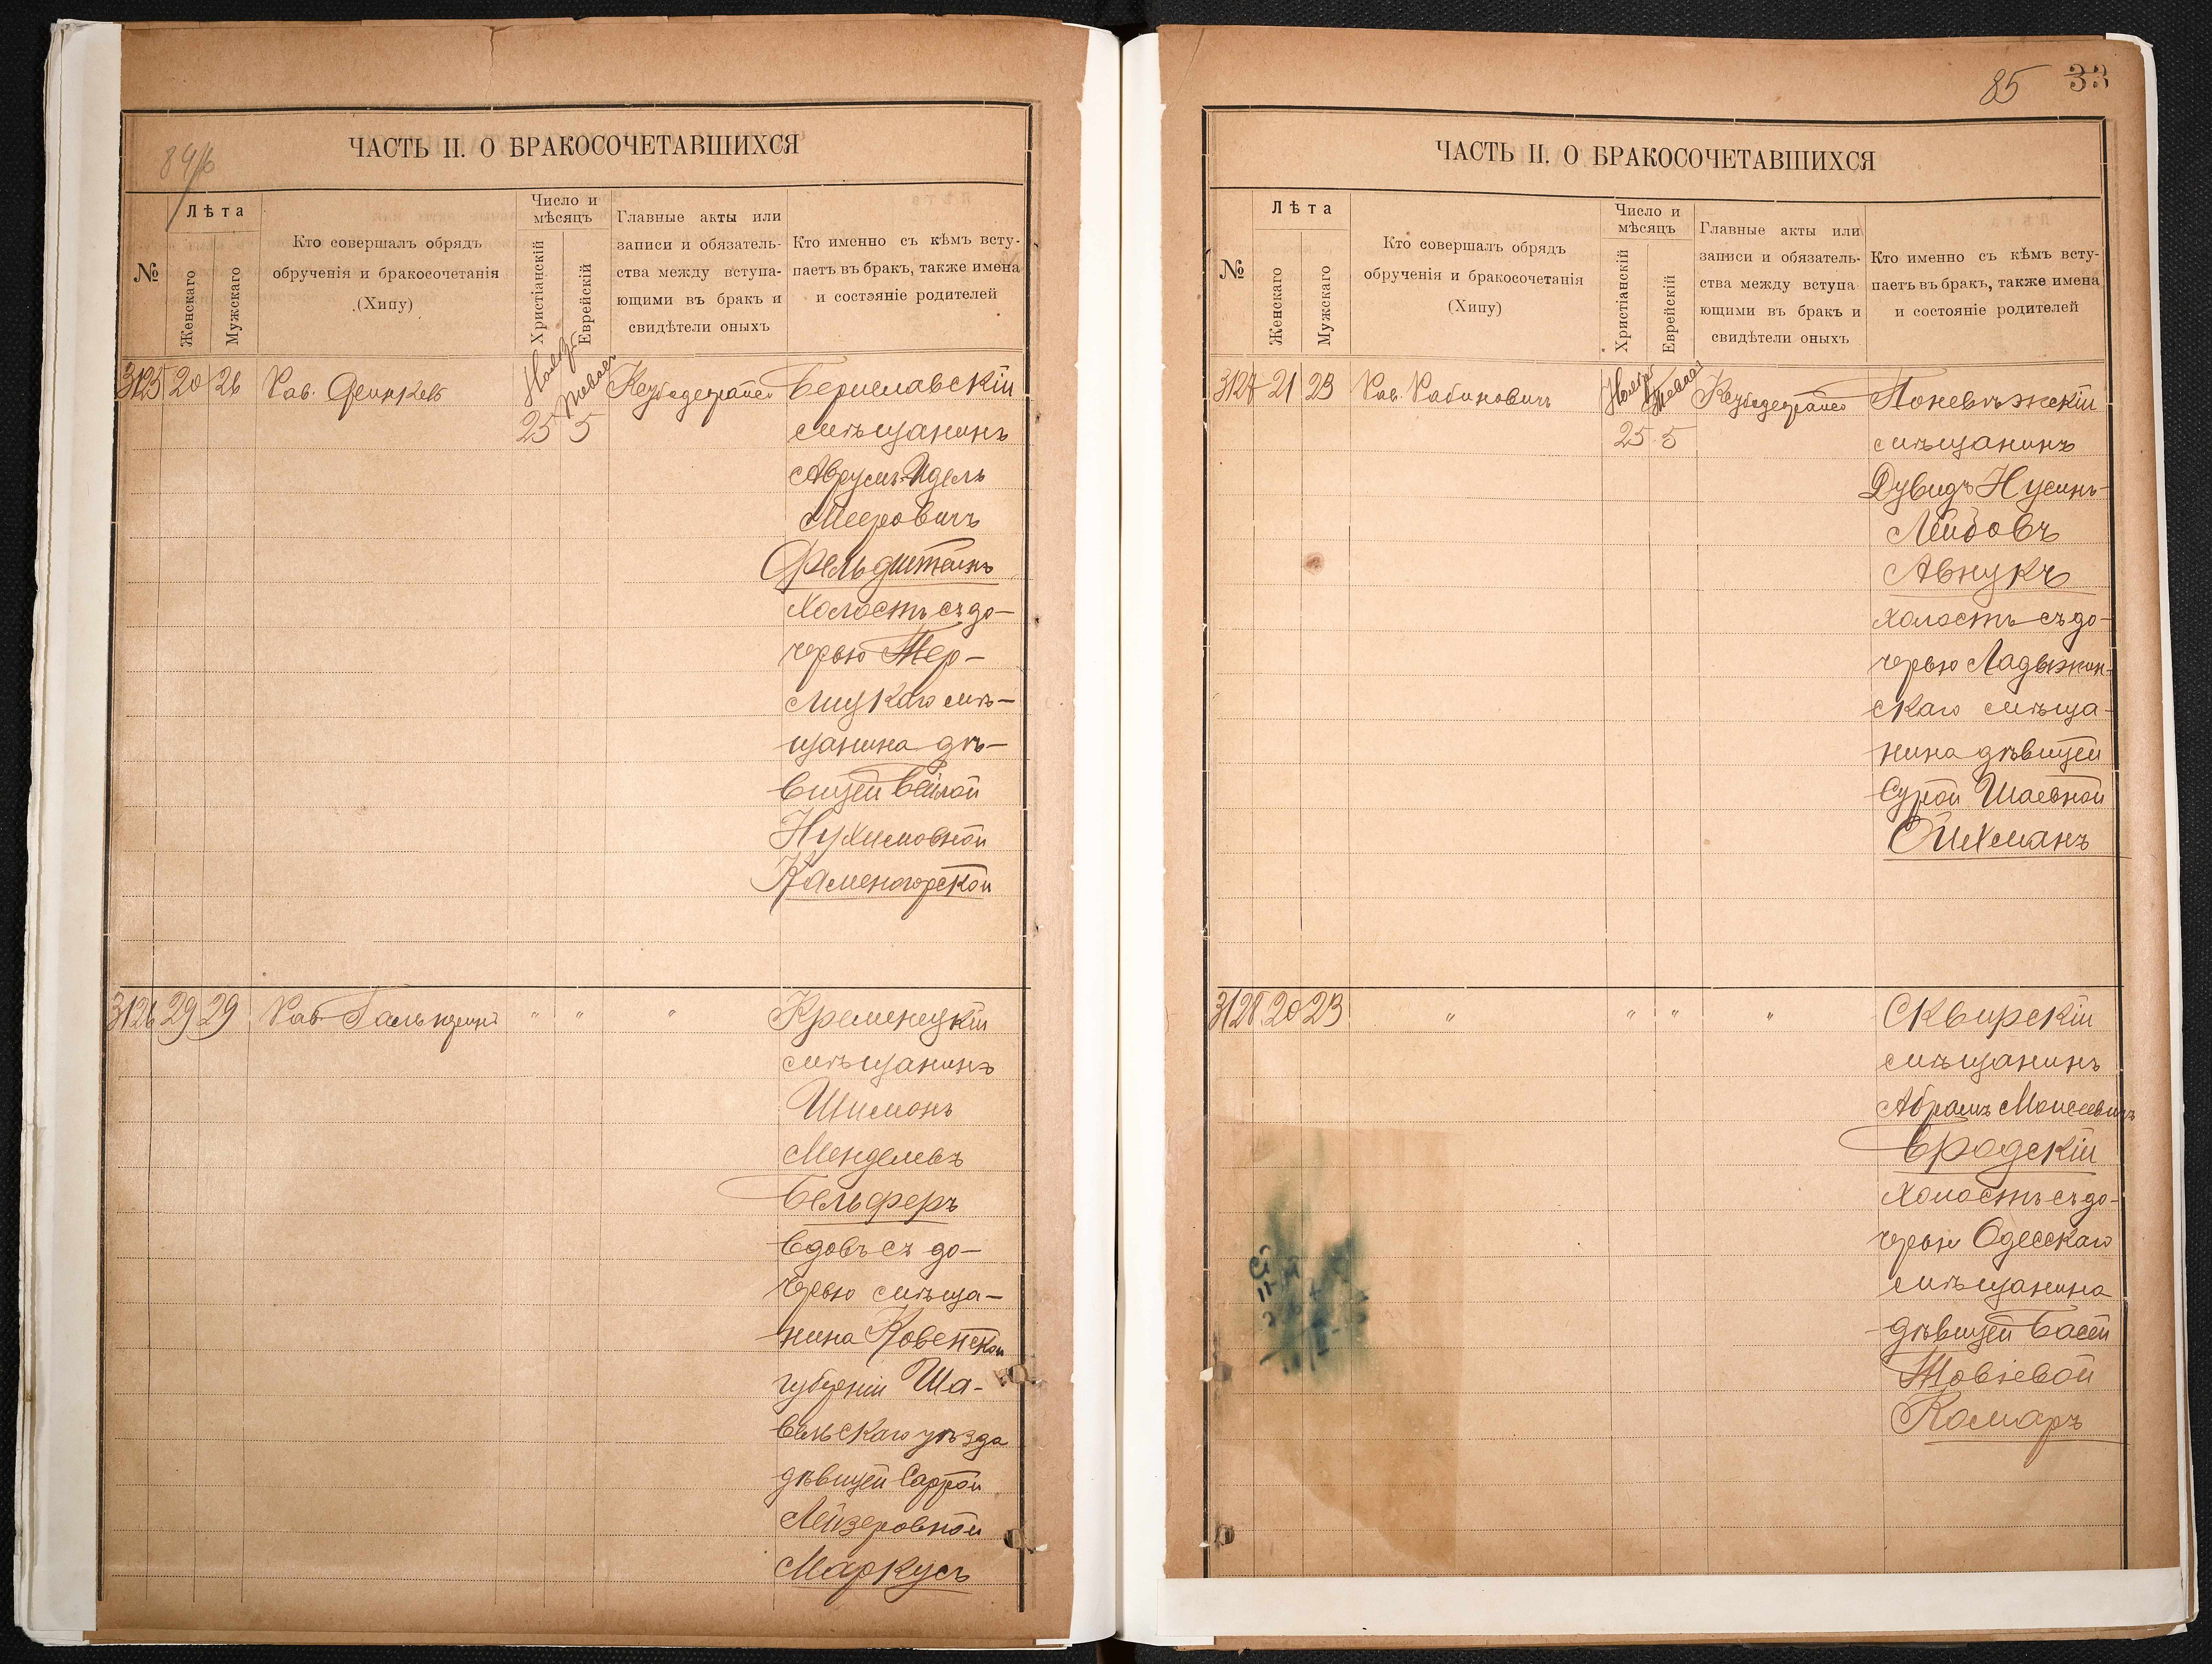 84/б
ЧАСТЬ II. О БРАКОСОЧЕТАВШИХСЯ
№
Лѣта
Женскаго
Мужскаго
Кто совершалъ обрядъ
обрученія и бракосочетанія
(Хипу)
Число и
мѣсяцъ
Христіанскій
Еврейскій
Главные акты или
записи и обязатель-
ства между вступа-
ющими въ бракъ и
свидѣтели оныхъ
Кто именно съ кѣмъ всту-
паетъ въ бракъ, также имена
и состояніе родителей
3125 20 26 Рав.
Ноябр Тевает
25 5
Бериславскій
мѣщанинъ
Аврумъ-Идель
Мееровичъ
Фельдштейнъ
холостъ съ до-
черью Тер-
лицкаго мѣ-
щанина дѣ-
вицей Бейлой
Нухимовной
Каменогорской
3126 29 29 Рав. Гальперинъ " " "
Кременецкій
мѣщанинъ
Шимонъ
Менделевъ
Бельферъ
вдовъ съ до-
черью мѣща-
нина Ковенской
губерніи Ша-
вельскаго уѣзда
дѣвицей Саррой
Лейзеровной
Маркусъ
85 33
ЧАСТЬ II. О БРАКОСОЧЕТАВШИХСЯ
№
Лѣта
Женскаго
Мужскаго
Кто совершалъ обрядъ
обрученія и бракосочетанія
(Хипу)
Число и
мѣсяцъ
Христіанскій
Еврейскій
Главные акты или
записи и обязатель-
ства между вступа
ющими въ бракъ и
свидѣтели оныхъ
Кто именно съ кѣмъ всту-
паетъ въ бракъ, также имена
и состояніе родителей
3127 21 23 Рав. Рабиновичъ
Ноябр Тевает
25 5
Поневѣжскій
мѣщанинъ
Дувидъ Нусинъ-
Лейбовъ
Авнукъ
холостъ съ до-
черью Ладыжин-
скаго мѣща-
нина дѣвицей
Сурой Шаевной
Фихманъ
3128 20 23 " " " "
Сквирскій
мѣщанинъ
Абрамъ Моисеевичъ
Бродскій
холостъ съ до-
черью Одесскаго
мѣщанина
дѣвицей Басей
Товіевой
Комаръ